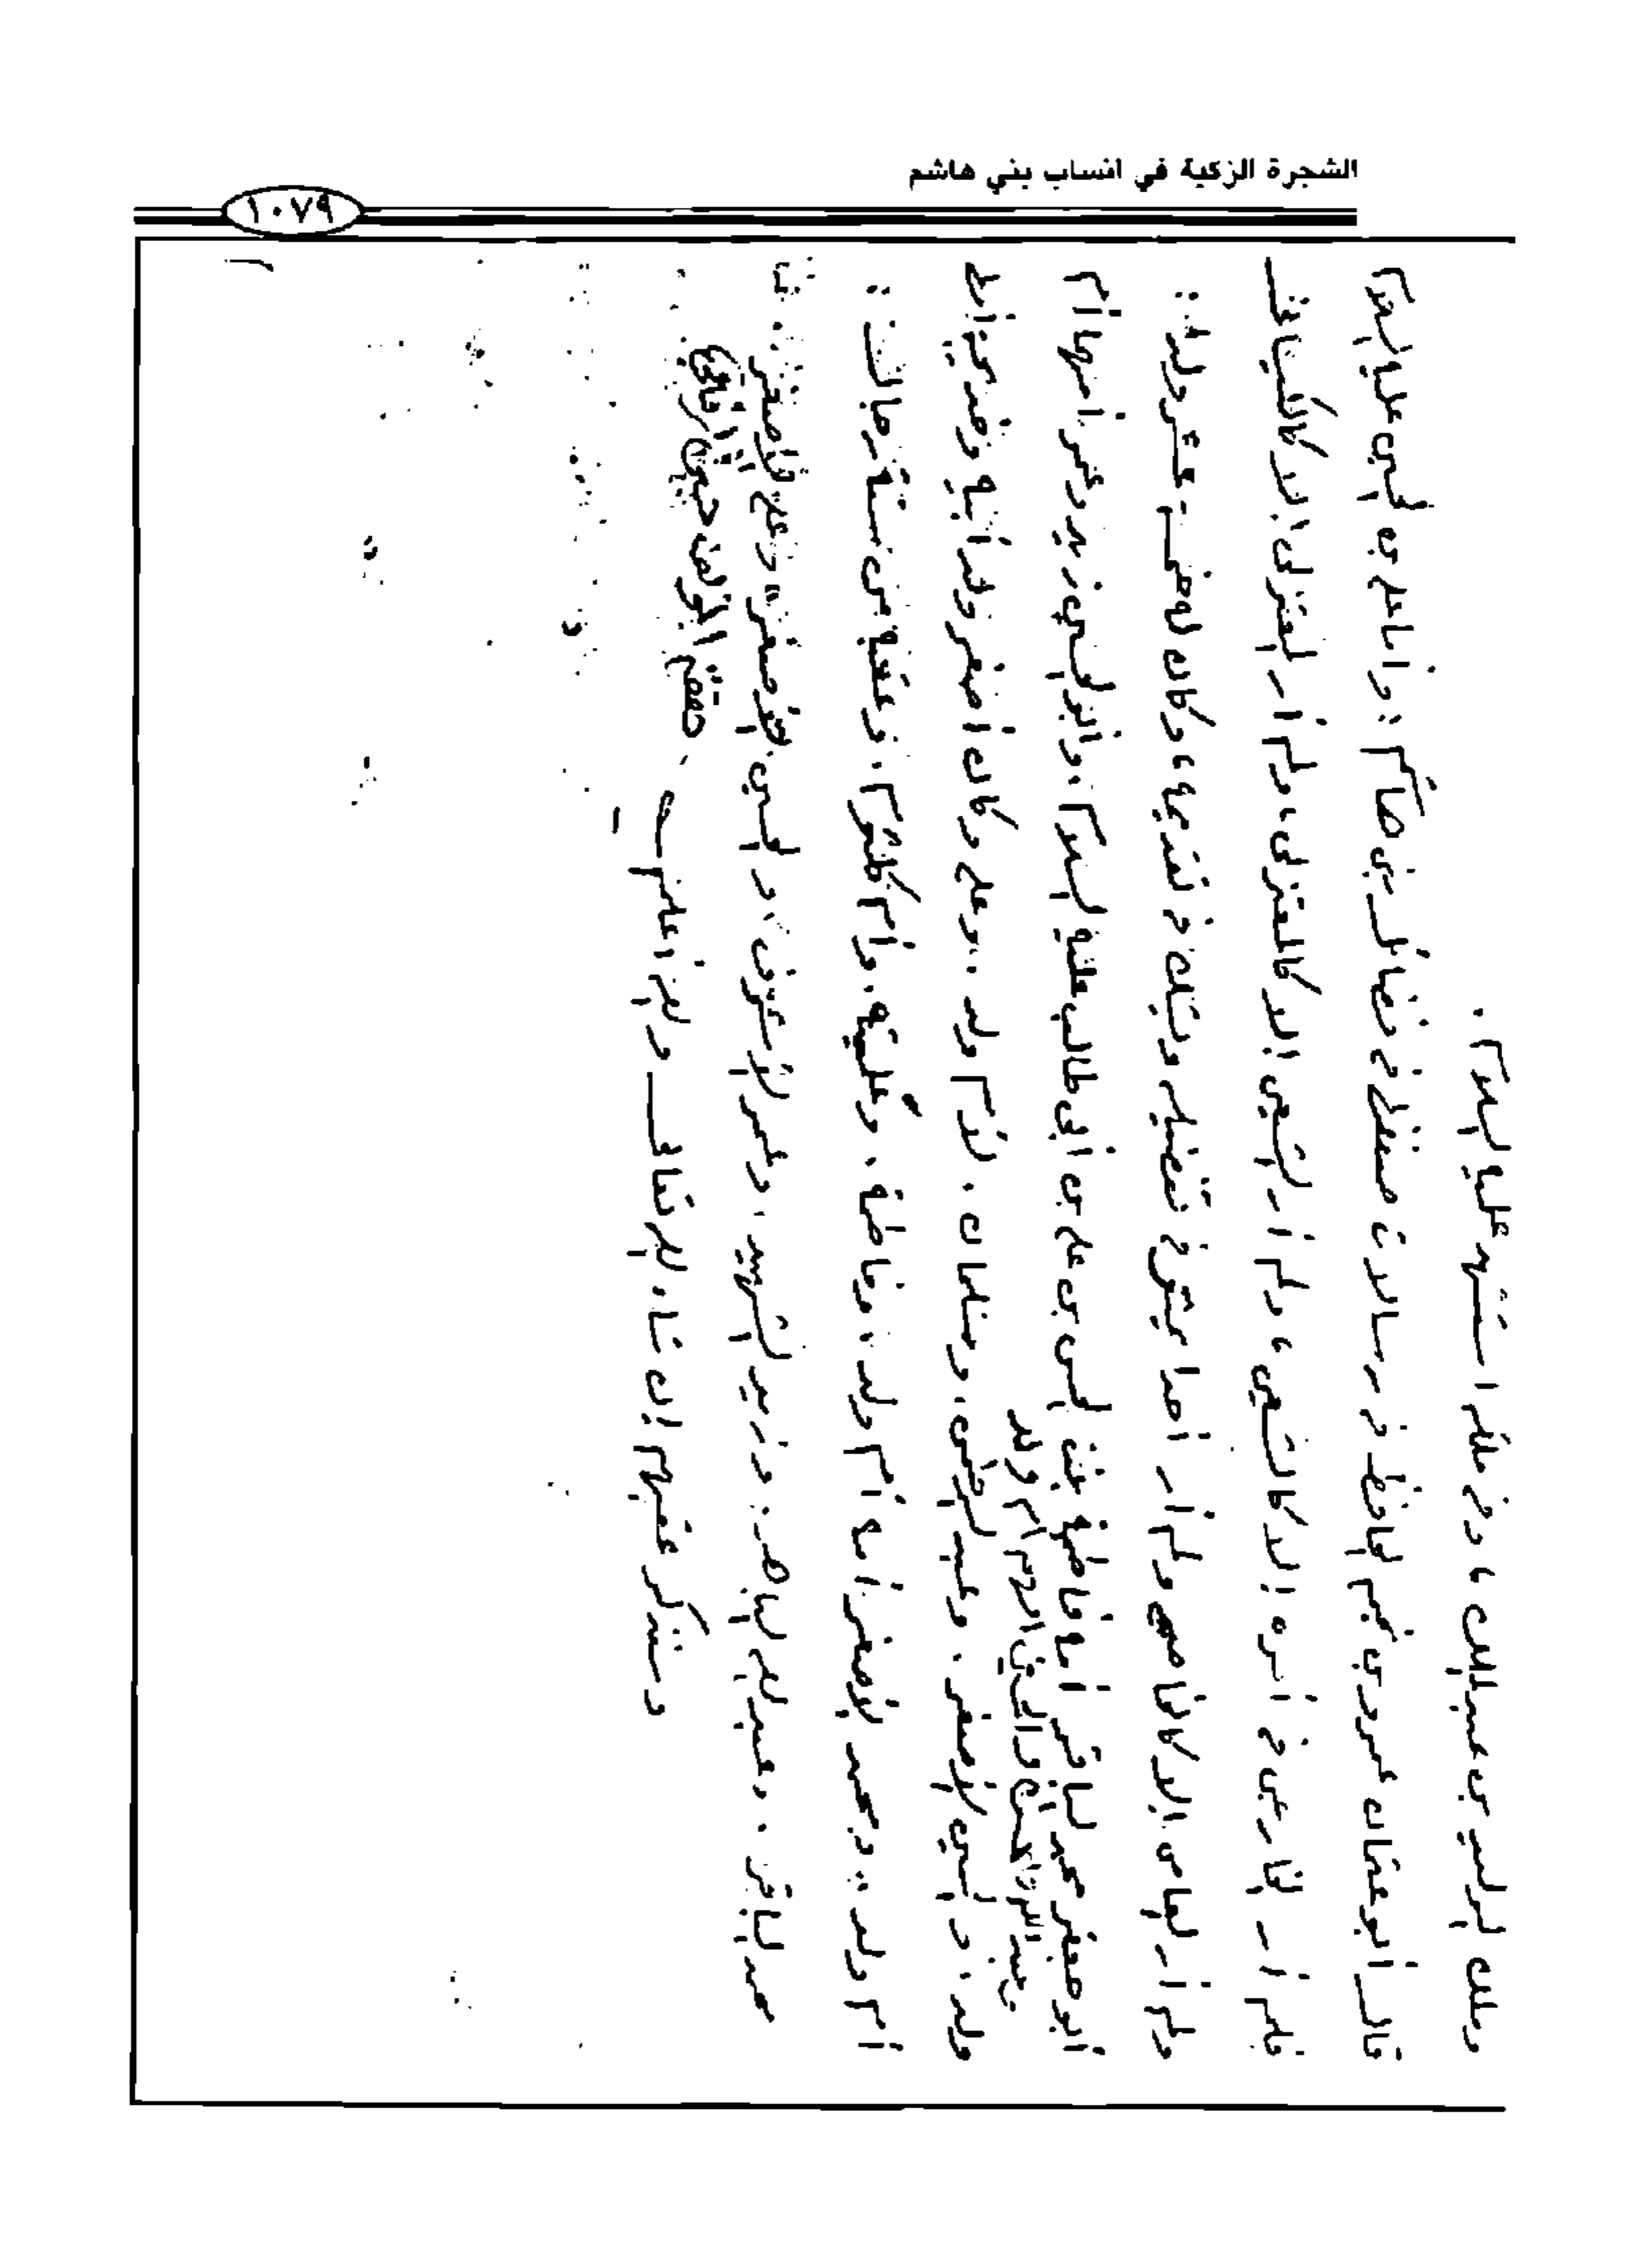 الشجرة الزكية في انساب بني هاشم
١٠٧٩
وخلافة الوليد بن عبدالملك ، وفي ملكه استشهد عليه السلام .
قال أبو عثمان عمرو بن بحر الجاحظ في رسالة صنفها في فضائل بني هاشم : وأما علي بن الحسين عليه السلام
فلم أر الخارجي في أمره إلا كالشيعي ، ولم أر الشيعي إلا كالمعتزلي ، ولم أر المعتزلي إلا كالعامي
ولم أر العامي إلا كالخاصي ولم أر أحدا يمتري في تفضيله ويشك في تقديمه ، وكان له خمسة عشر ولدا :
أبو جعفر محمد الباقر أمه فاطمة بنت الحسن بن علي بن أبي طالب عليه السلام ، وأبو الحسين زيد وعمر أمهما أم
ولد ، وعبد الله والحسن والحسين أمهم أم ولد
والحسين الأصغر ، وعبد الرحمن ، وسليمان ، لأم ولد ، وعلي وكان أصغر ولد أبيه وخديجة
أم ولد ، ومحمد الأصغر أمه أم ولد ، وفاطمة ، وعلية ، وأم كلثوم ، وعقبه من ستة رجال :
محمد الباقر ، وعبد الله الباهر ، وزيد الشهيد ، وعمر الأشرف ، والحسين الأصغر ، وعلي الأصغر
وسنذكر عقبهم إن شاء الله تعالى والله أعلم